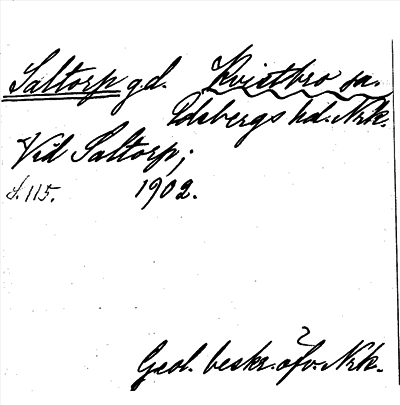 Saltorp gd. Kvistbro sn.
Edsbergs hd. Nrk.
Vid Saltorp;
S. 115. 1902.
Geol. beskr. öfv. Nrk.